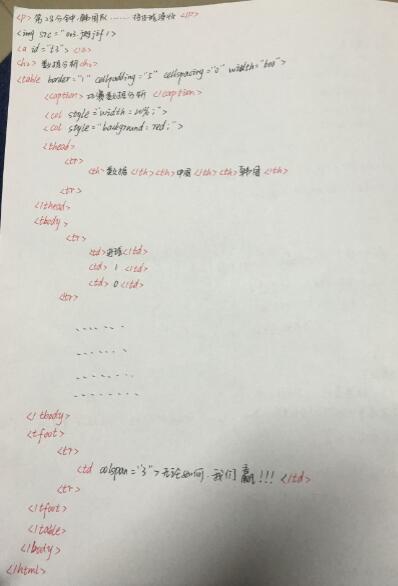 <p> 第23分钟,韩国队 ......
<img src = "
<a id="t3"> </a>
<h2> 数据分析<h2>
<table border="1" cellpadding="5" cellspacing="0" width="600">
<caption> 比赛数据分析 </caption>
<col style="width=20%;">
<col style="background=red;">
<thead>
<tr>
<th>数据</th><th>中国</th><th>韩国</th>
<tr>
</thead>
<tbody>
<tr>
<td>进球</td>
<td> 1 </td>
<td> 0 </td>
<tr>
.......
......
......
.........
</tbody>
<tfoot>
<tr>
<td colspan="3">无论如何,我们赢!!! </td>
<tr>
</tfoot>
</table>
</body>
</html>